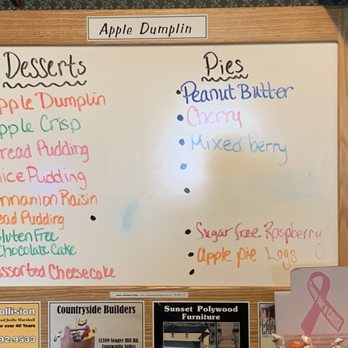 Apple Dumplin
Desserts
Pies
pple Dumplin
pple Crisp
read Pudding
ice Pudding
innamon Raisin
ead Pudding
luten Free
Chocolate Cake
ssorted Cheesecake
Peanut Butter
Cherry
Mixed berry
Sugar free Raspberry
Apple Pie Logs
ollision
nd Joelle Marshall
or over 40 Years
92-9533
Countryside Builders
11599 Seager Hill Rd.
Conewango Valley
Sunset Polywood
Furniture